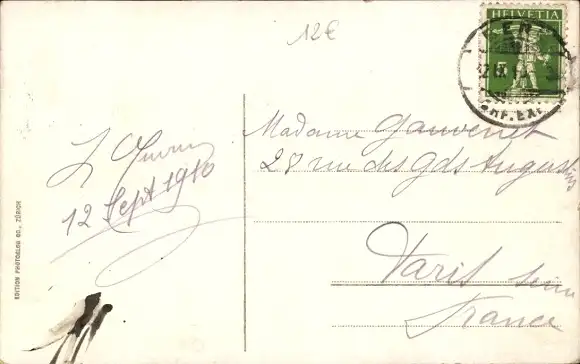 12€
HELVETIA
5
BERN
BRF.EXP.
12 Sept 1910
Madame Gauvenet
28 rue des Gds Augustins
Paris Seine
France
EDITION PHOTOGLOB CO., ZÜRICH